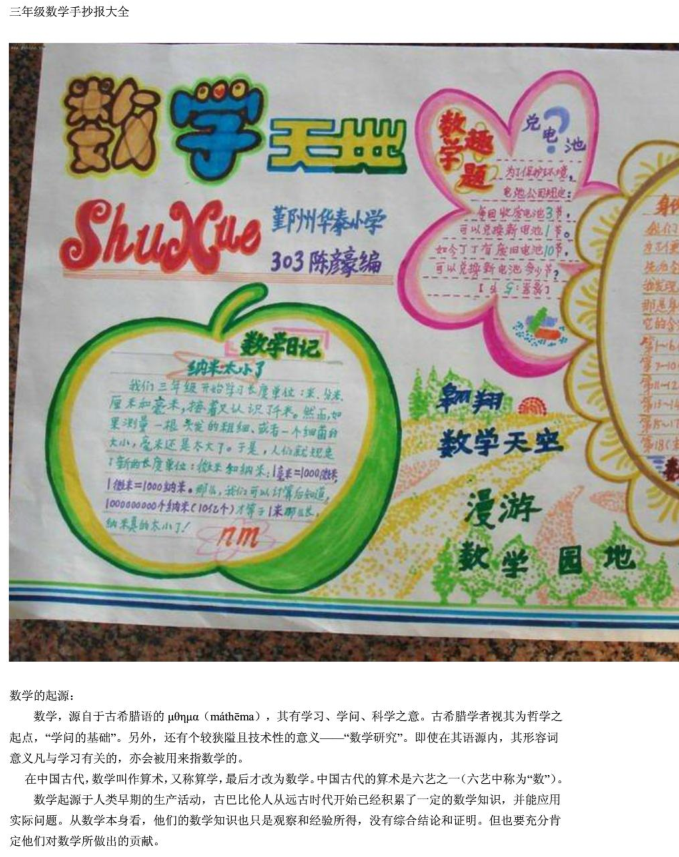 三年级数学手抄报大全
数学天地
ShuXue
鄞州华泰小学
303 陈彦豪编
数学趣题
兑电池
?
为了保护环境,
电池公司规定:
每回收废电池3节,
可以兑换新电池1节。
如今丁丁有废旧电池10节,
可以兑换新电池多少节?
数学日记
纳米太小了
我们三年级开始学习长度单位:米、分米、
厘米和毫米,接着又认识了千米。然而,如
果测量一根头发的粗细,或者一个细菌的
大小,毫米还是太大了。于是,人们就规定
了新的长度单位:微米和纳米:1毫米=1000微米,
1微米=1000纳米。那么,我们可以计算后知道,
1000000000个纳米(10亿个)才等于1米那么长,
纳米真的太小了!
nm
翱翔
数学天空
漫游
数学园地
我们
第1-6
第7-10
第11-12
第13-14
第15-17
第18(
数学的起源:
数学,源自于古希腊语的 μθημα(máthēma),其有学习、学问、科学之意。古希腊学者视其为哲学之
起点,“学问的基础”。另外,还有个较狭隘且技术性的意义——“数学研究”。即使在其语源内,其形容词
意义凡与学习有关的,亦会被用来指数学的。
在中国古代,数学叫作算术,又称算学,最后才改为数学。中国古代的算术是六艺之一(六艺中称为“数”)。
数学起源于人类早期的生产活动,古巴比伦人从远古时代开始已经积累了一定的数学知识,并能应用
实际问题。从数学本身看,他们的数学知识也只是观察和经验所得,没有综合结论和证明。但也要充分肯
定他们对数学所做出的贡献。